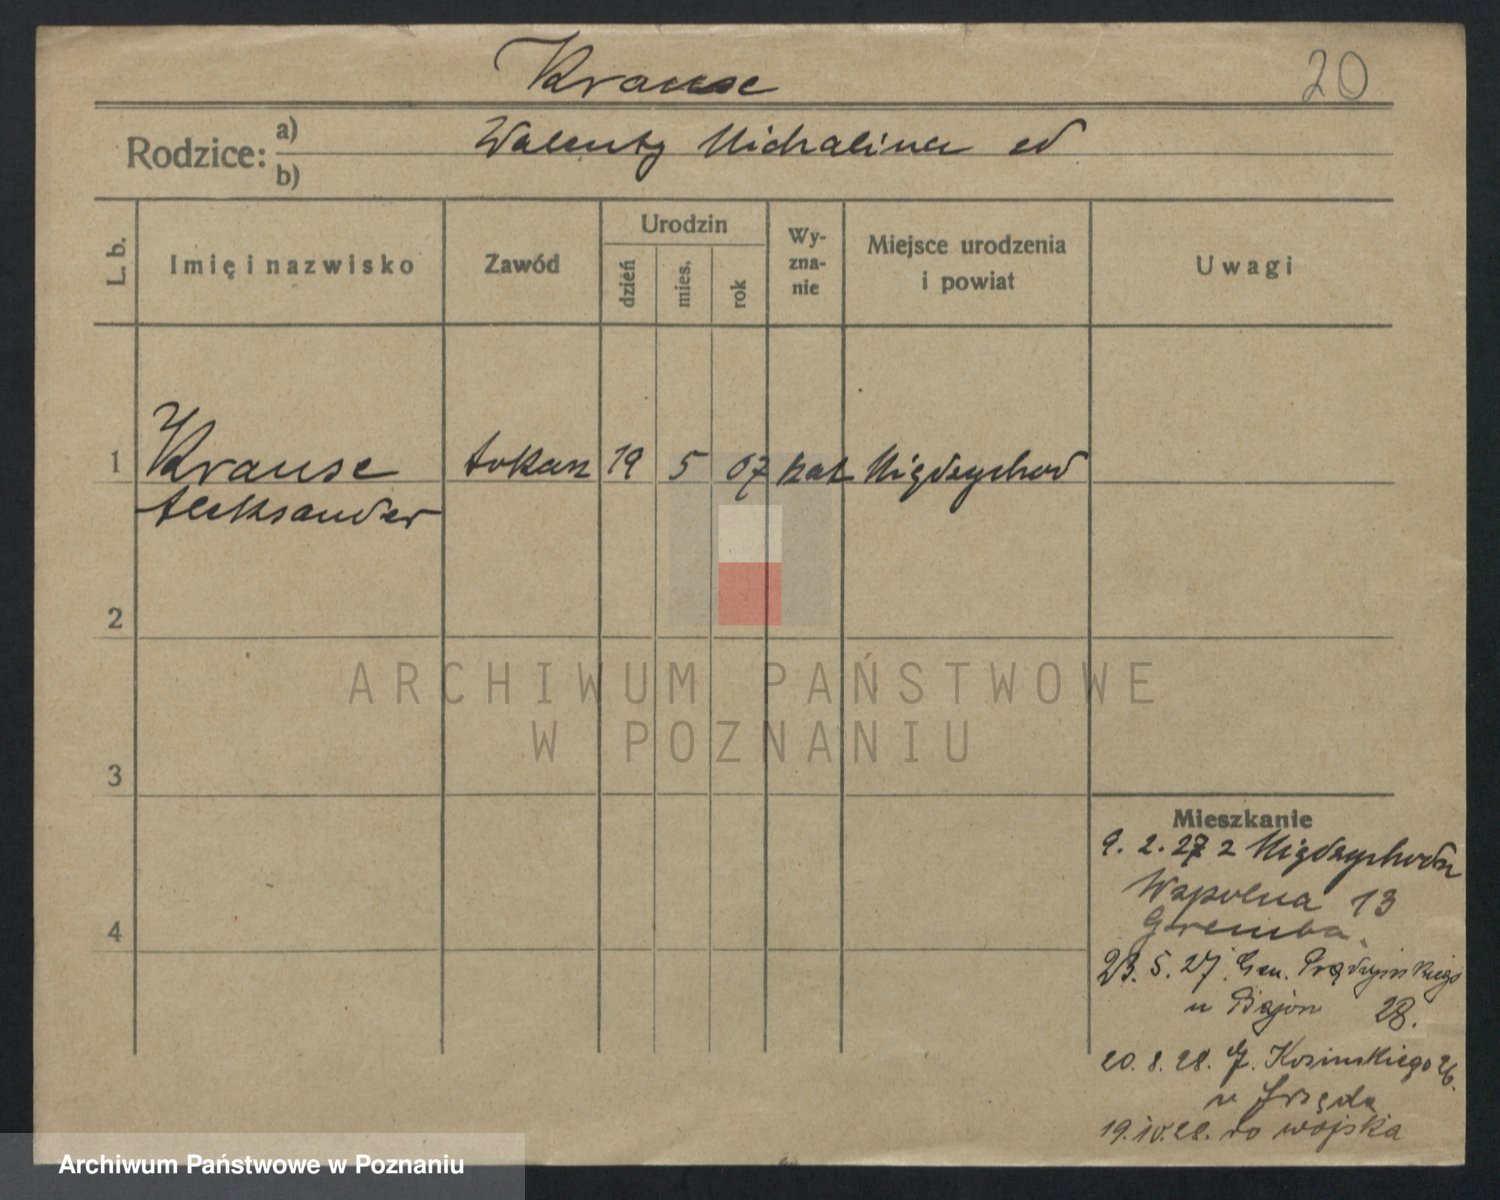 Krause
20
Rodzice: a)
Walenty Michalina
b)
L. b.
Imię i nazwisko
Zawód
Urodzin
dzień
mies.
rok
Wy-
zna-
nie
Miejsce urodzenia
i powiat
Uwagi
1
Krause
Aleksander
tokarz
19
5
07
kat
Międzychod
2
3
4
ARCHIWUM PAŃSTWOWE
W POZNANIU
Mieszkanie
9. 2. 27 z Międzychodu
Wspolna 13
23. 5. 27. Gen. Prądzyńskiego
u 28.
20. 8. 28. Kosinskiego 26.
u
19. 10. 28. do wojska
Archiwum Państwowe w Poznaniu